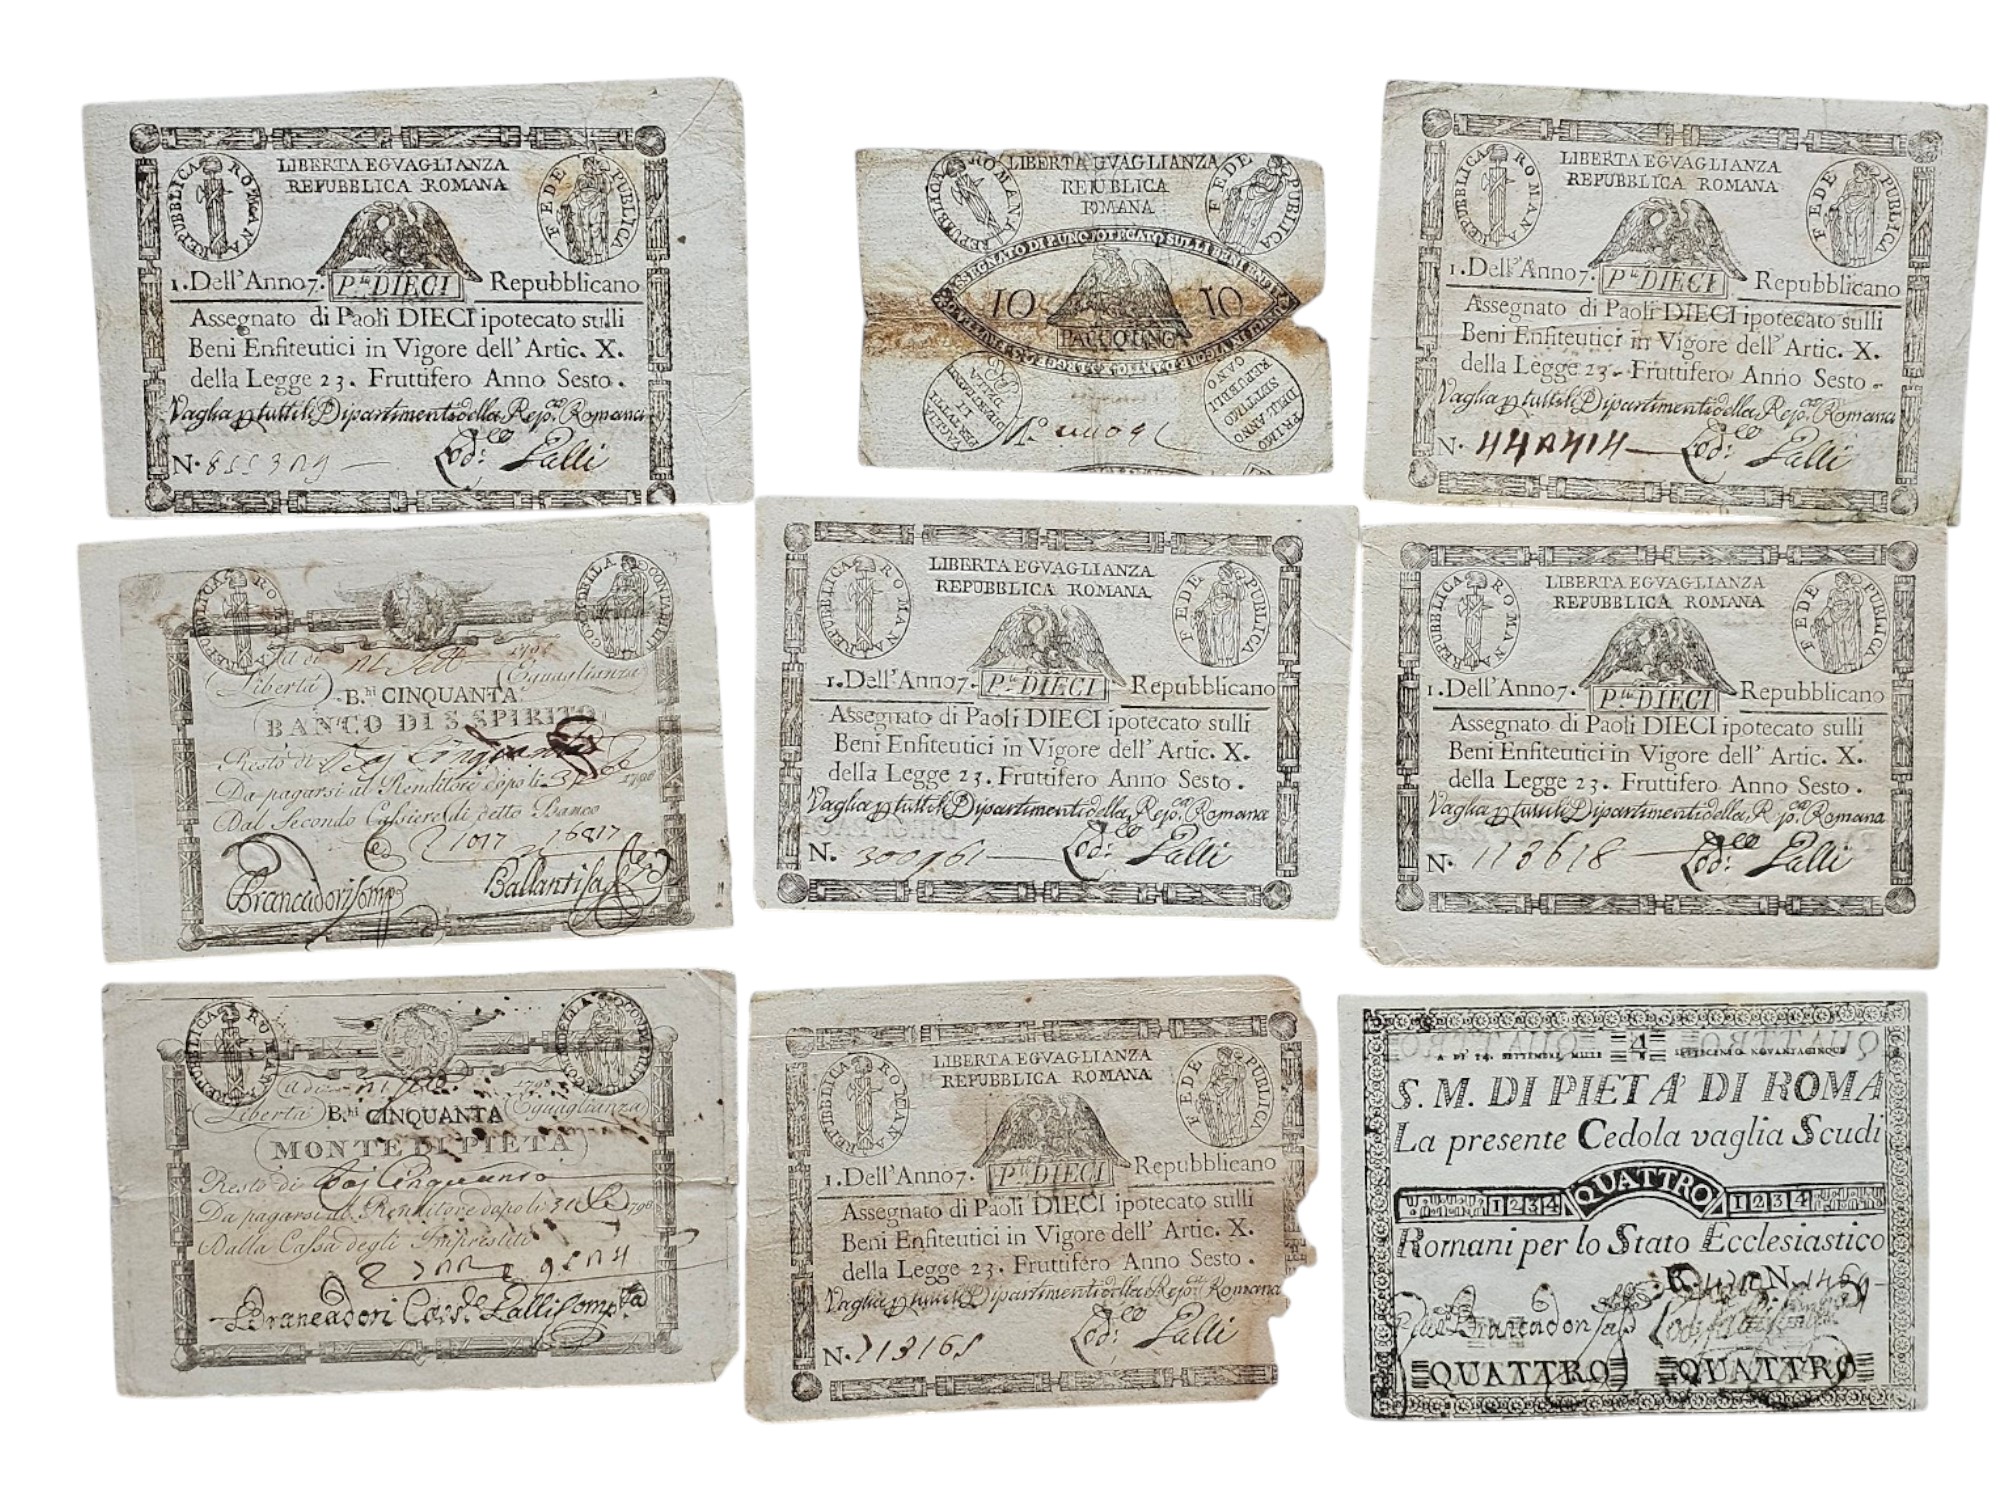 REPUBBLICA ROMANA
LIBERTA EGVAGLIANZA
REPUBBLICA ROMANA
FEDE PUBLICA
1. Dell'Anno 7. P.li DIECI Repubblicano
Assegnato di Paoli DIECI ipotecato sulli
Beni Enfiteutici in Vigore dell' Artic. X.
della Legge 23. Fruttifero Anno Sesto.
Vaglia p tutti li Dipartimenti della Rep.ca Romana
N.
Lod.co Lalli
REPUBBLICA ROMANA
LIBERTA GVAGLIANZA
REPUBLICA
ROMANA
FEDE PUBLICA
10 10
VAGLIA
PER TUTTI
LI
DIPARTIMENTI
DELLA
PRIMO
DELL ANNO
SETTIMO
REPUBLI
CANO
REPUBBLICA ROMANA
LIBERTA EGVAGLIANZA
REPUBBLICA ROMANA
FEDE PUBLICA
1. Dell'Anno 7. P.li DIECI Repubblicano
Assegnato di Paoli DIECI ipotecato sulli
Beni Enfiteutici in Vigore dell' Artic. X.
della Legge 23. Fruttifero Anno Sesto.
Vaglia p tutti li Dipartimenti della Rep.ca Romana
N.
Lod.co Lalli
REPUBBLICA
CONTABILITÀ
A di 1798
Libertà Eguaglianza
B.hi CINQUANTA
BANCO DI S. SPIRITO
Resto di Cinquanta
Da pagarsi al Renditore dopo li 31 1798
Dal Secondo Cassiere di detto Banco
1017 16817
Brancadori Comp Ballanti
REPUBBLICA ROMANA
LIBERTA EGVAGLIANZA
REPUBBLICA ROMANA
FEDE PUBLICA
1. Dell'Anno 7. P.li DIECI Repubblicano
Assegnato di Paoli DIECI ipotecato sulli
Beni Enfiteutici in Vigore dell' Artic. X.
della Legge 23. Fruttifero Anno Sesto.
Vaglia p tutti li Dipartimenti della Rep.ca Romana
N. 300961
Lod.co Lalli
REPUBBLICA ROMANA
LIBERTA EGVAGLIANZA
REPUBBLICA ROMANA
FEDE PUBLICA
1. Dell'Anno 7. P.li DIECI Repubblicano
Assegnato di Paoli DIECI ipotecato sulli
Beni Enfiteutici in Vigore dell' Artic. X.
della Legge 23. Fruttifero Anno Sesto.
Vaglia p tutti li Dipartimenti della Rep.ca Romana
N. 113618
Lod.co Lalli
REPUBBLICA ROMAN
A di 1798
Libertà Eguaglianza
B.hi CINQUANTA
MONTE DI PIETÀ
Resto di Cinquanta
Da pagarsi al Renditore dopo li 31 1798
Dalla Cassa degli Imprestiti
Brancadori Cass.e Lalli Comp.ta
REPUBBLICA ROMANA
LIBERTA EGVAGLIANZA
REPUBBLICA ROMANA
FEDE PUBLICA
1. Dell'Anno 7. P.li DIECI Repubblicano
Assegnato di Paoli DIECI ipotecato sulli
Beni Enfiteutici in Vigore dell' Artic. X.
della Legge 23. Fruttifero Anno Sesto.
Vaglia p tutti li Dipartimenti della Rep.ca Romana
N.
Lod.co Lalli
A DI 14. SETTEMBRE MILLE 4 SETTECENTO NOVANTACINQUE
S. M. DI PIETA' DI ROMA
La presente Cedola vaglia Scudi
1 2 3 4 QUATTRO 1 2 3 4
Romani per lo Stato Ecclesiastico
N.
Brancadori
QUATTRO QUATTRO